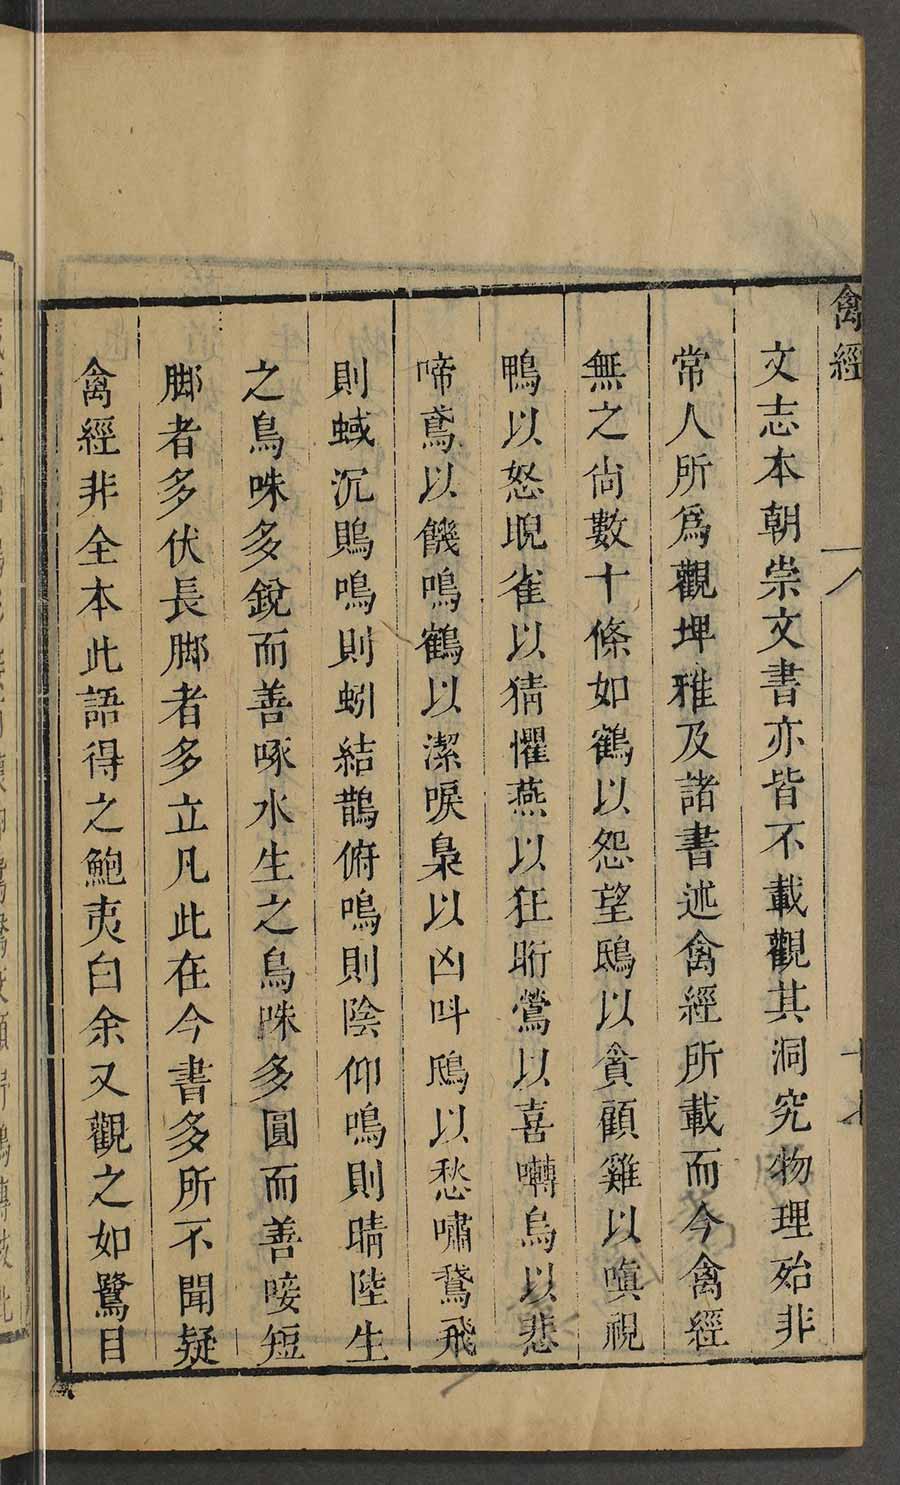 禽經
文志本朝崇文書亦皆不載觀其洞究物理殆非
常人所爲觀埤雅及諸書述禽經所載而今禽經
無之尚數十條如鶴以怨望鴟以貪顧雞以嗔視
鴨以怒睨雀以猜懼燕以狂䀪鶯以喜囀烏以悲
啼鳶以饑鳴鶴以潔唳梟以凶叫鴟以愁嘯鵞飛
則蜮沉鵙鳴則蚓結鵲俯鳴則陰仰鳴則晴陸生
之鳥咮多銳而善啄水生之鳥咮多圓而善唼短
脚者多伏長脚者多立凡此在今書多所不聞疑
禽經非全本此語得之鮑夷白余又觀之如鷺目